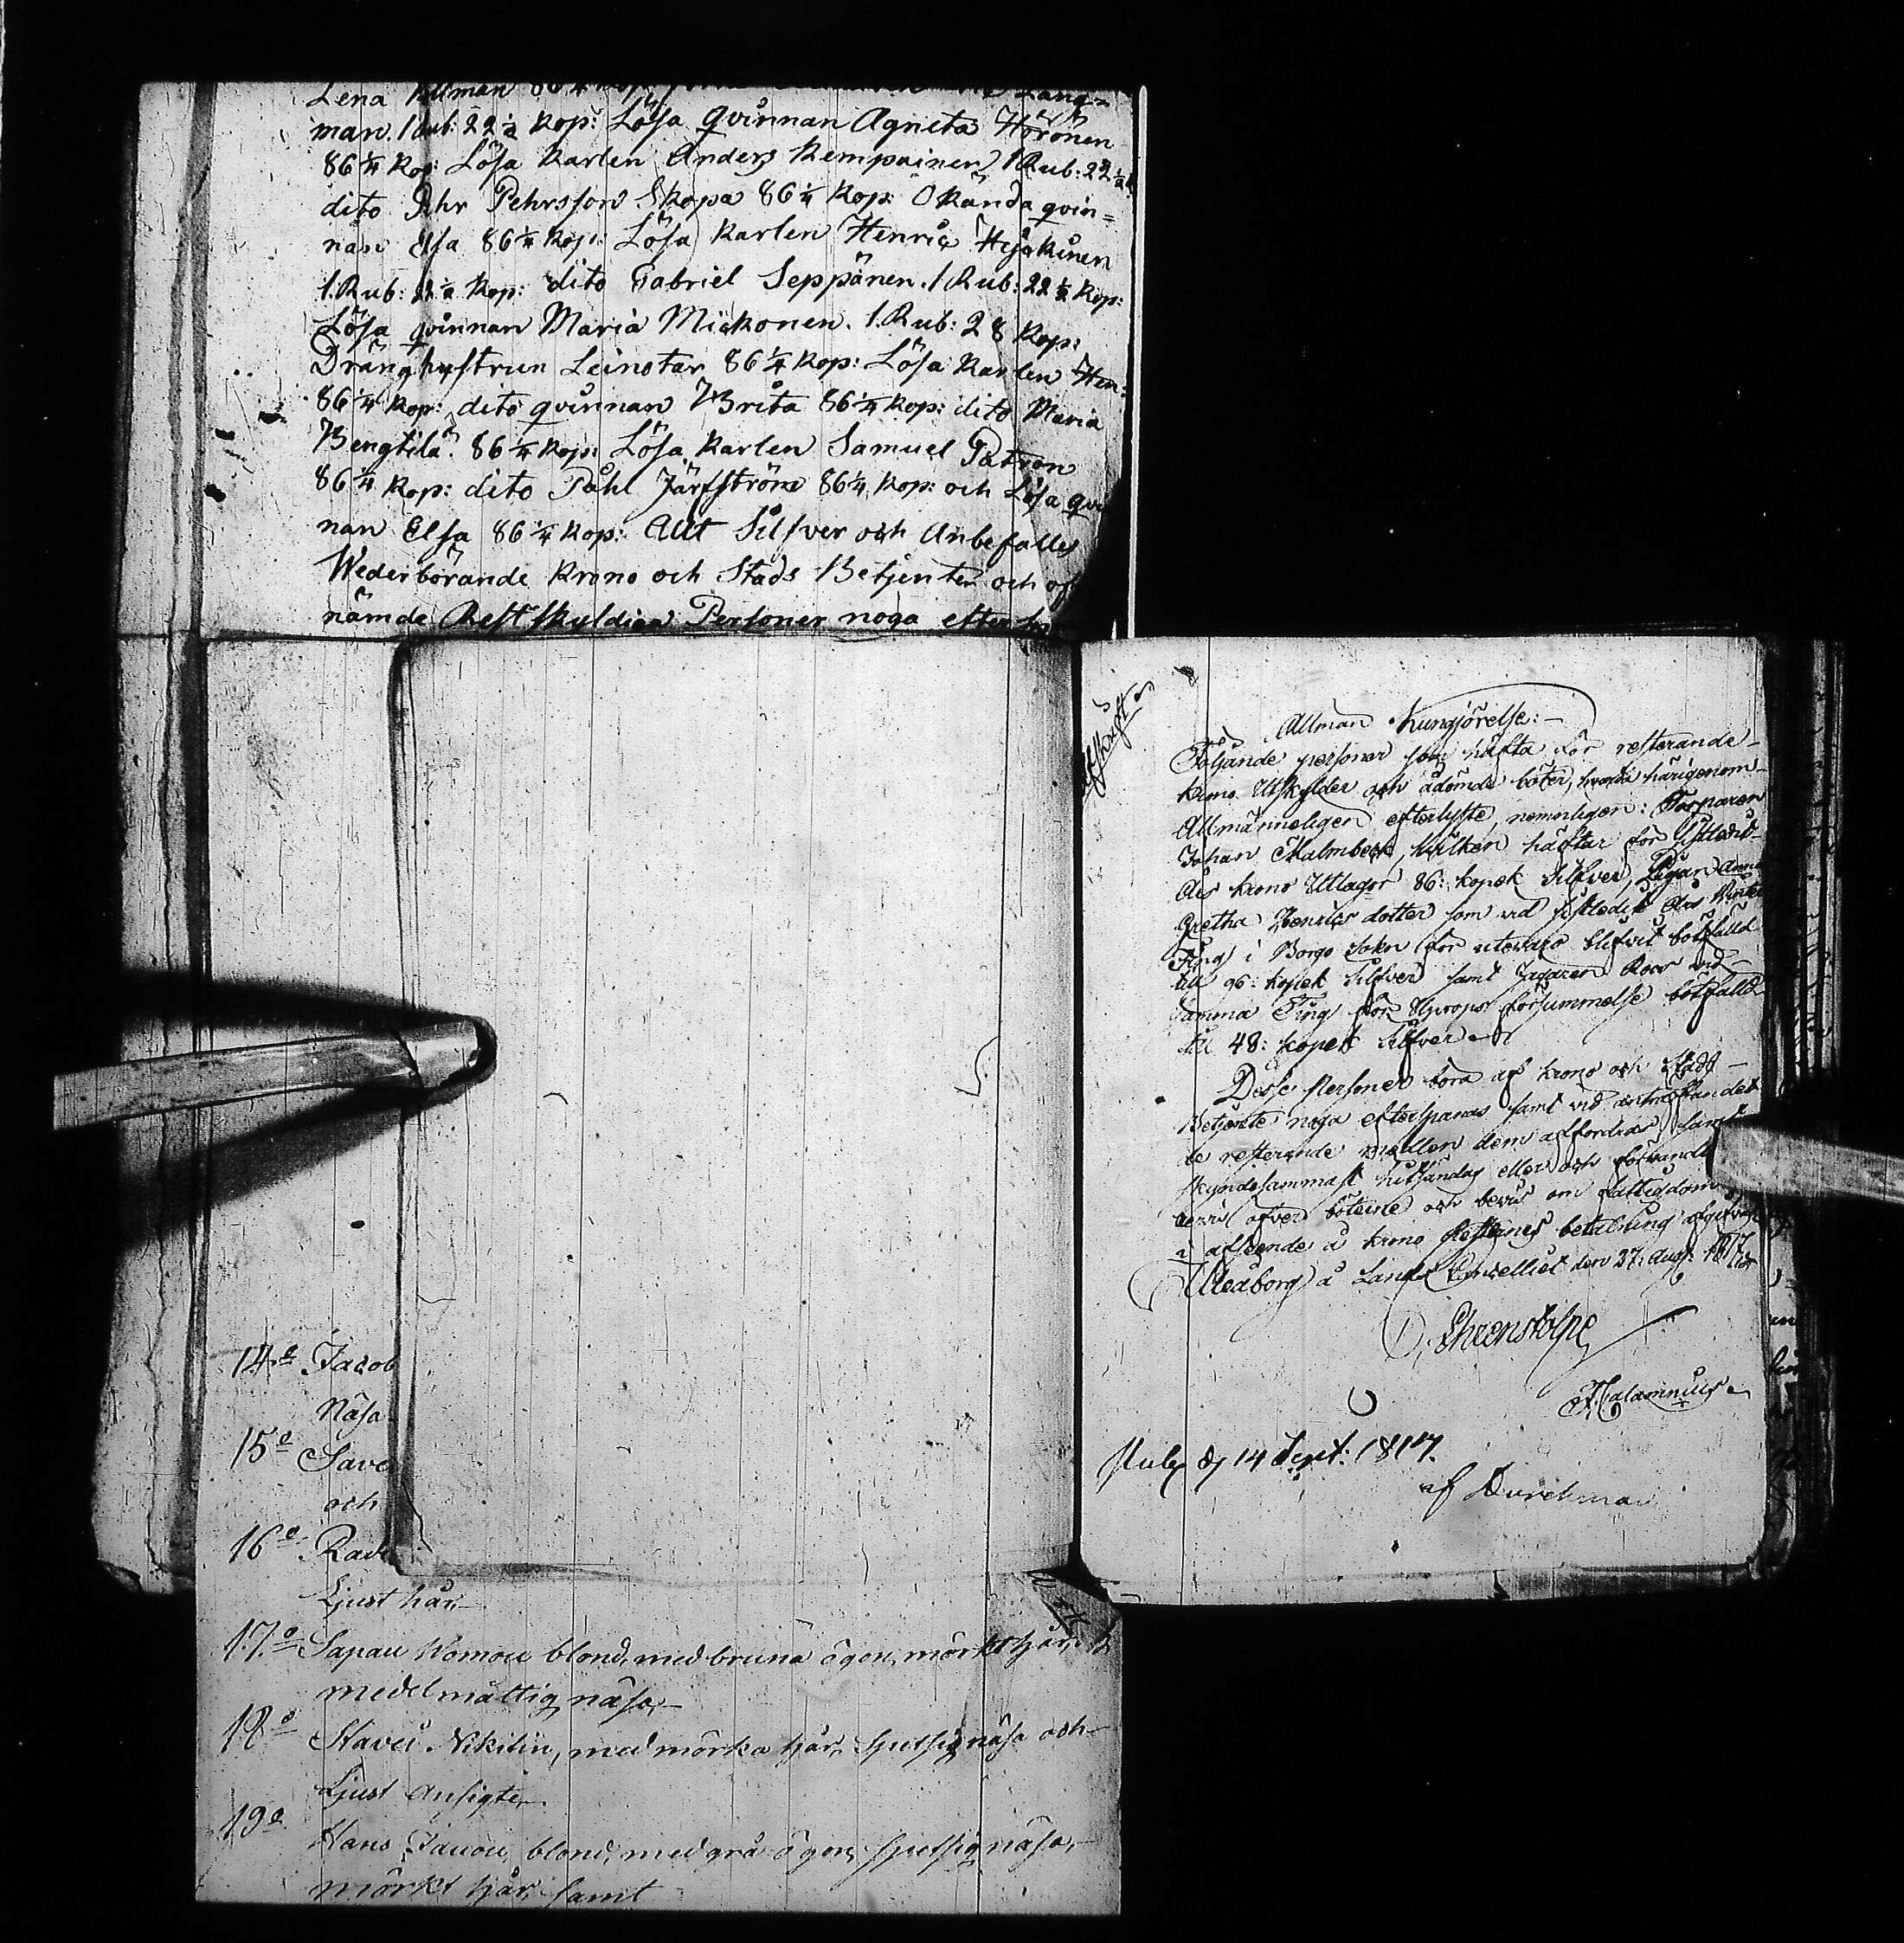 Lena Killman 86 1/4 Kop: Lång=
man. 1 Rub: 22 1/2 Kop: Lösa qvinnan Agneta Hörönen
86 1/4 Kop: Lösa Karlen Anders Kempainen 1 Rub: 22 1/2
dito Pehr Pehrsson Skopa 86 1/4 Kop: Okända qvin=
nan Elsa 86 1/4 Kop: Lösa Karlen Henric
1. Rub: 22 1/2 Kop: dito Gabriel Seppänen. 1 Rub: 22 1/2 Kop:
Lösa qvinnan Maria Mickonen. 1. Rub: 28 Kop:
Dränghustrun Leinotar 86 1/4 Kop: Lösa Karlen Hen:
86 1/4 Kop: dito qvinnan Brita 86 1/4 Kop: dito Maria
Bengtilä. 86 1/4 Kop: Lösa Karlen Samuel Patron
86 1/4 Kop: dito Påhl Järfström 86 1/4 Kop: och Lösa qvi
nan Elsa 86 1/4 Kop: Allt Silfver och Anbefalles
Wederbörande Krono och Stads Betjenter och of
nämde Restskuldiga Personer noga efter
14:o Jacob
Näsa
15:o Save
och
16:o
Ljust hår
17:o Sapau Womou blond, med bruna ögon, mörkt hår,
medelmåttig näsa,
18:o Stavei Nikitin, med mörka hår, Spetsig näsa och
Ljust Ansigte,
19:o Hans Jauou, blond, med grå ögon, spetsig näsa,
mörkt hår, samt
Afskrift
Allmän Kungörelse:
Följande personer som häfta för resterande
Krono Utskylder och ådömda böter, varda härigenom
Allmänneligen efterlyste, nemnligen: Torparen
Johan Malmbeck, hvilken häftar för sistledid
Års Krono Utlagor 86: kopek Silfver, Pigan Anna
Gretha Henricsdotter som vid sistledit Års Vinter
Ting i Borgo Sokn för utevaro blifvit bötfälld
till 96: kopek Silfver samt Jagaren Roos vid
samma Ting för Uprops försummelse bötfälld
till 48: kopek Silfver
Desse Personer böra af Krono och Stads
Betjente noga efterspanas samt vid anträffandet
de resterande medlen dem affordras samt
skyndesammast hitsändas eller och förvandl
bevis öfver böterne och bevis om fattigdom
i afseende å Krono Resternes betalning afgifvas
Uleåborg å Lands Cancelliet den 27. Aug: 1817
Ehrenstolpe
F. Calamnius
Publ: d. 14 Sept: 1817.
af